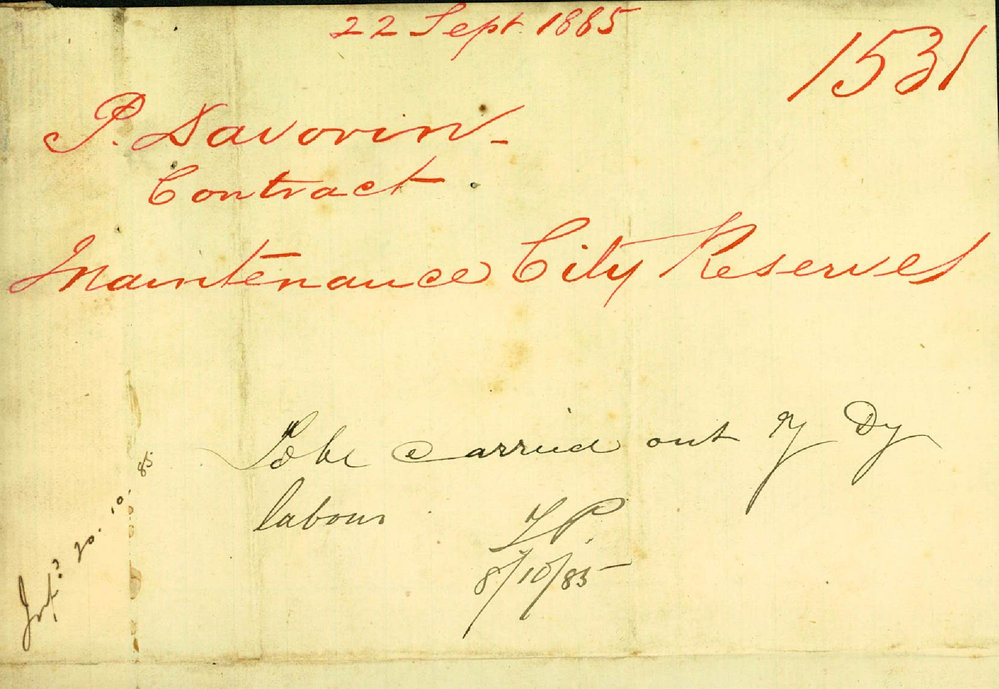 22 Sept 1885
1531
P. Davorin -
Contract.
Maintenance City Reserves
To be carried out by Dy
labour
8/10/85
20.10.85.